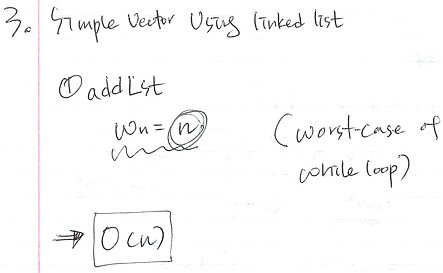 3. Simple Vector Using linked list
① addList
Wn = n
(worst-case of
while loop)
⇒ O(n)